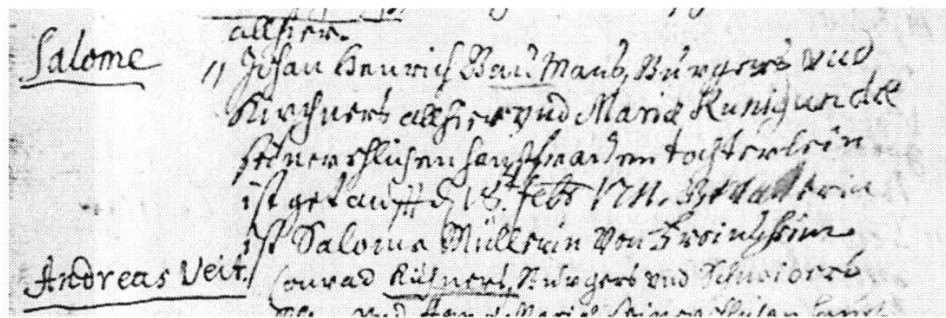 allhier.
Salome
" Johan Henrich Bau Mans, Burgers und
Kirchners allhier und Maria Kunigundæ
seiner ehlichen haußfrauen tochterlein
ist getaufft d. 18. febr. 1711. Gevatterin
ist Salome Müllerin von Freinsheim.
Andreas Veit.
Conrad Küchners, Burgers und Schneiders
und Anna Maria seiner ehlichen